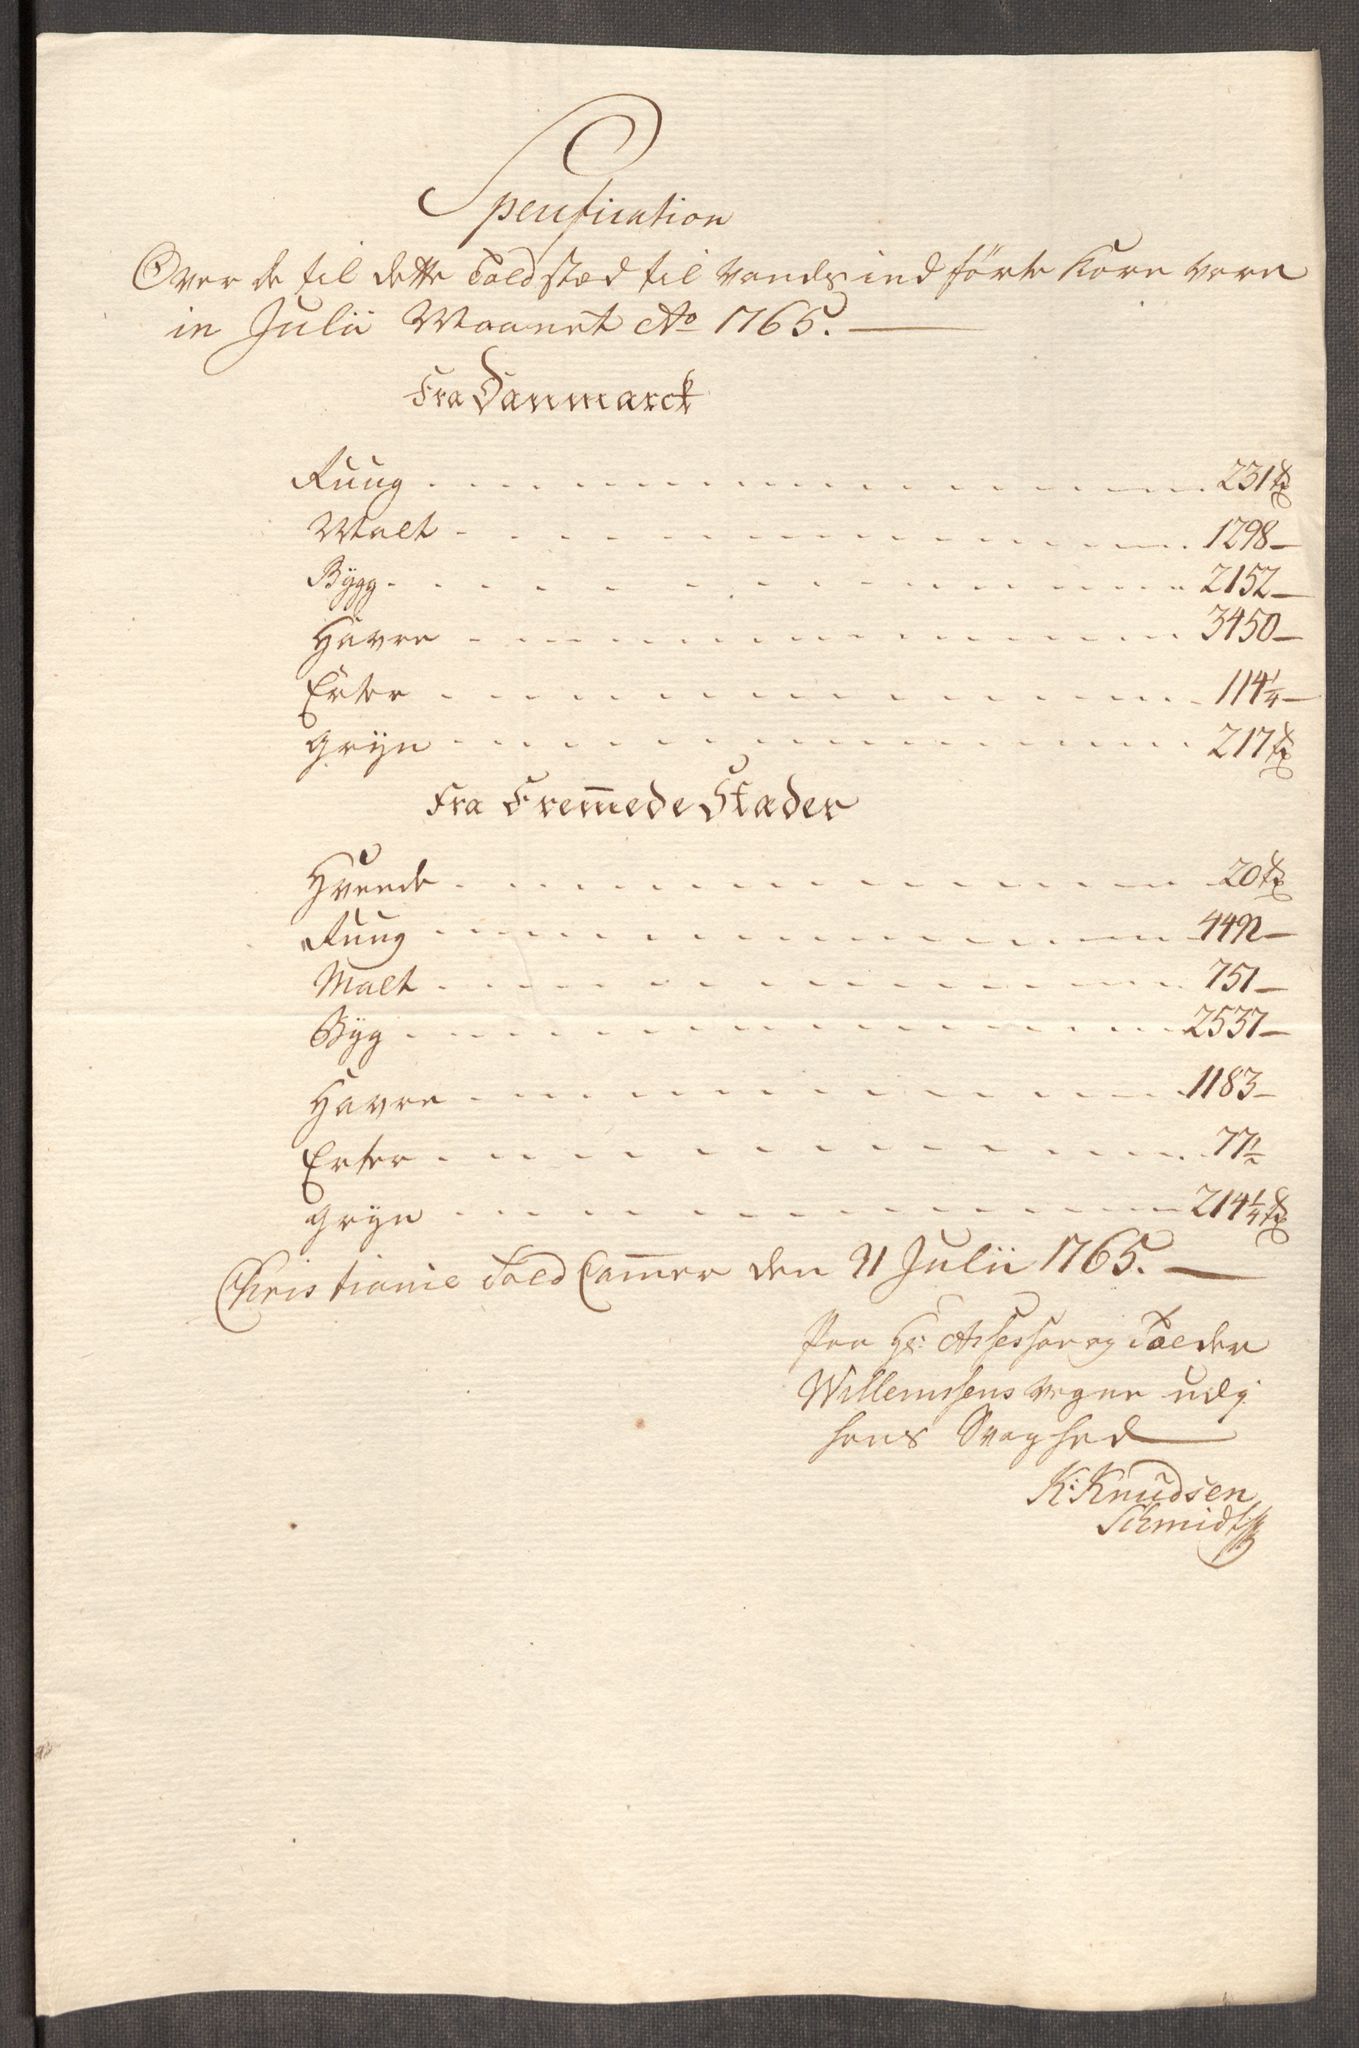 Specification
Over de til dette Toldsted til vands indförte Korn vare
in Julii Maanet Ao 1765.
Fra Danmarck
Ruug 231 tr
Malt 1298 —
Bÿgg 2152 —
Havre 3450 —
Erter 114 1/4 —
Grÿn 217 tr
Fra Fremmede Stæder
Hvede 20 tr
Ruug 4492 —
Malt 751 —
Bÿg 2537 —
Havre 1183 —
Erter 77 1/2
Grÿn 214 1/4 tr
Christiania Told Cammer den 31 Julii 1765.
Paa Hr: Assessor og Tolder
Willemsens vegne udj
hans Svaghed
K: Knudsen
Schmidt